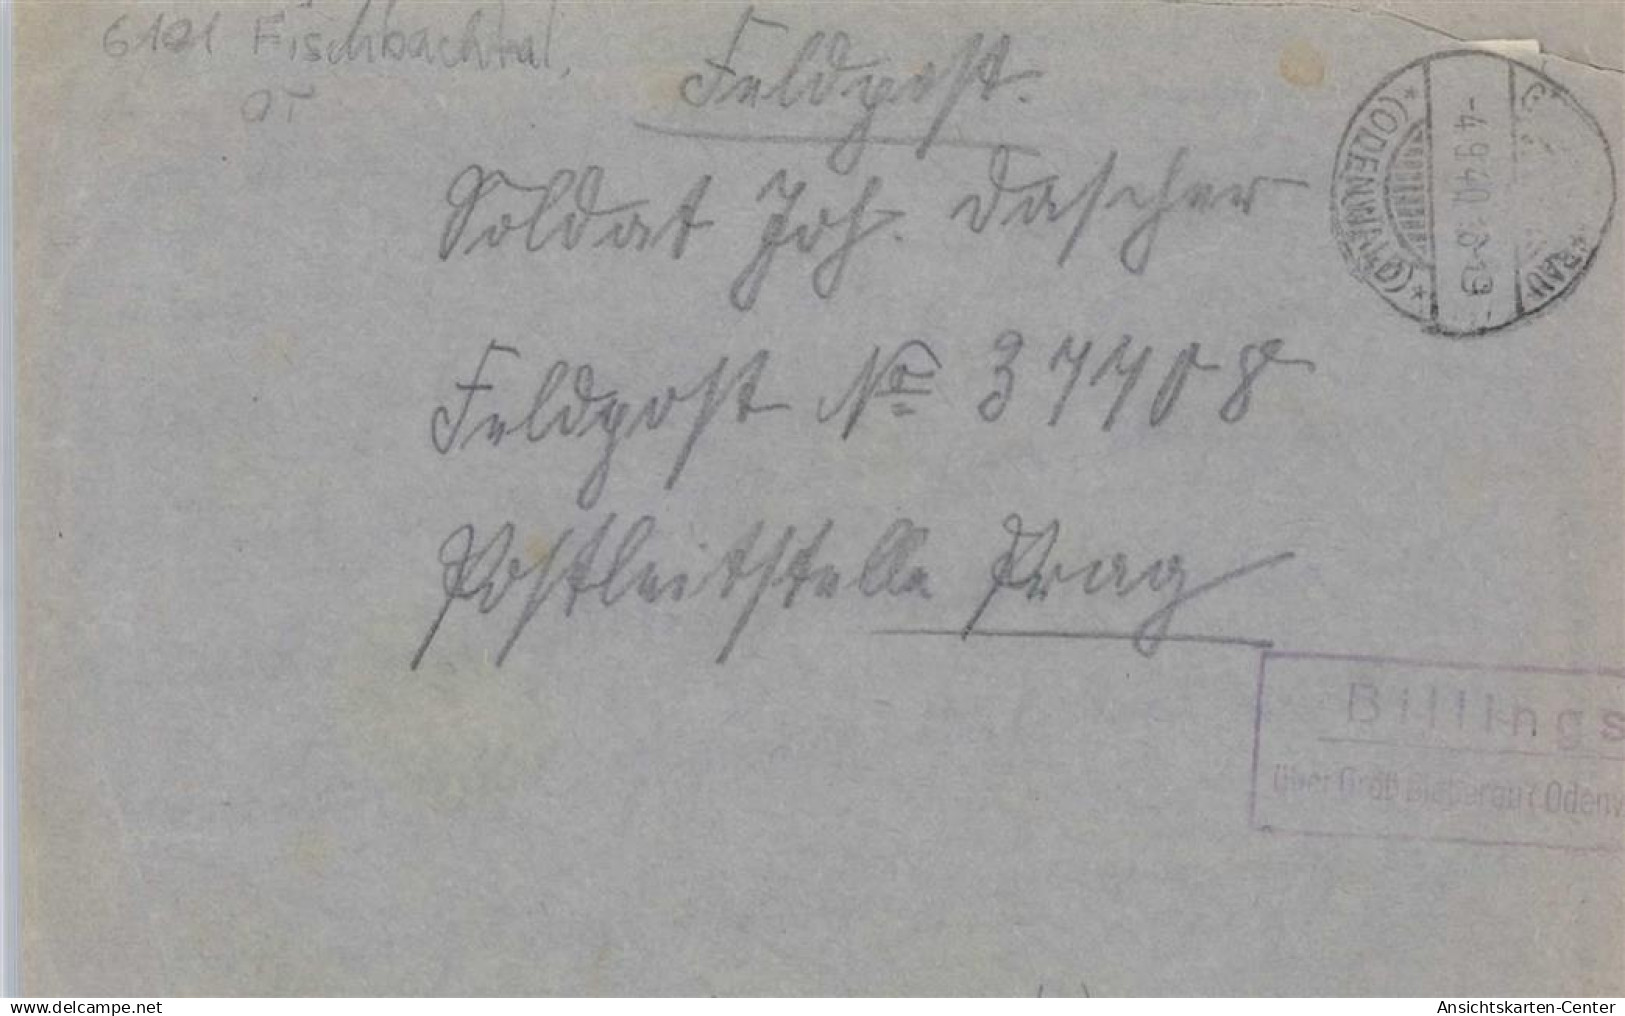 6101 Fischbachtal,
OT
Feldpost.
Soldat Joh. Dascher
Feldpost No 37708
Postleitstelle Prag
* (ODENWALD) *
-4.9.40 18-19
RAU
Billings
über Groß Bieberau (Odenw
delcampe.net
Ansichtskarten-Center